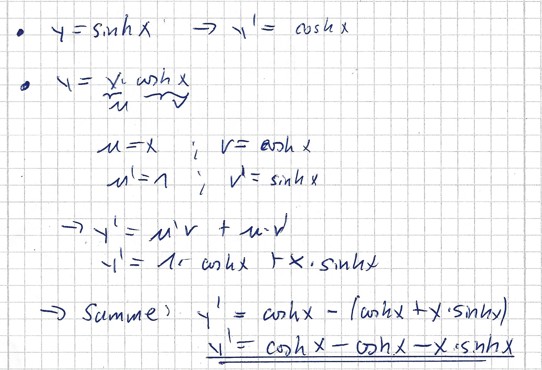 • y = sinh x → y' = cosh x
• y = x · cosh x
u v
u = x ; v = cosh x
u' = 1 ; v' = sinh x
→ y' = u'v + u·v'
y' = 1 · cosh x + x · sinh x
→ Summe: y' = cosh x − (cosh x + x · sinh x)
y' = cosh x − cosh x − x · sinh x